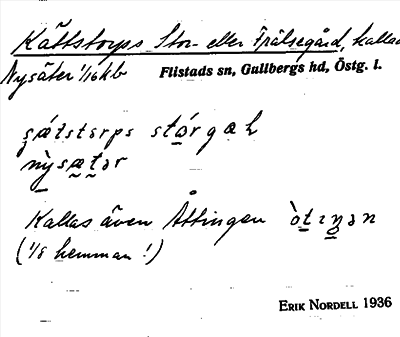 Kättstorps Stor- eller Frälsegård, kallad
Nysäter 1/16 kb Flistads sn, Gullbergs hd, Östg. l.
nysætər
Kallas även Åttingen òtıŋən
(1/8 hemman!)
ERIK NORDELL 1936